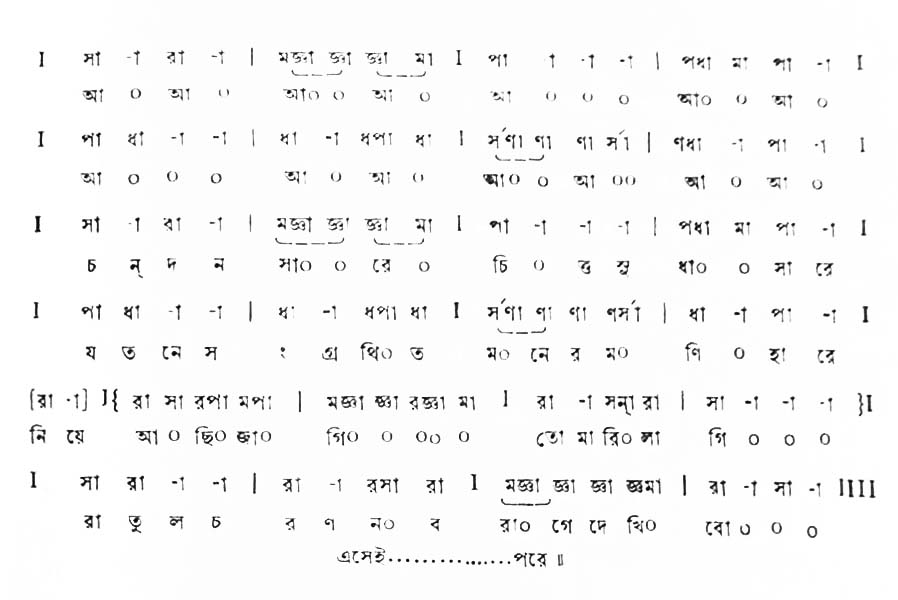 I সা -া রা -া | মজ্ঞা জ্ঞা জ্ঞা মা I পা -া -া -া | পধা মা পা -া I
আ ০ আ ০ আ০ ০ আ ০ আ ০ ০ ০ আ০ ০ আ ০
I পা ধা -া -া | ধা -া ধপা ধা I র্সণা ণা ণা র্সা | ণধা -া পা -া I
আ ০ ০ ০ আ ০ আ ০ আ০ ০ আ ০০ আ ০ আ ০
I সা -া রা -া | মজ্ঞা জ্ঞা জ্ঞা মা I পা -া -া -া | পধা মা পা -া I
চ ন্ দ ন সা০ ০ রে ০ চি ০ ত্ত সু ধা০ ০ সা রে
I পা ধা -া -া | ধা -া ধপা ধা I র্সণা ণা ণা ণর্সা | ধা -া পা -া I
য ত নে স ং গ্র থি০ ত ম০ নে র ম০ ণি ০ হা রে
[রা -া] I{ রা সা রপা মপা | মজ্ঞা জ্ঞা রজ্ঞা মা I রা -া সন্া রা | সা -া -া -া }I
নি য়ে আ ০ ছি০ জা০ গি০ ০ ০০ ০ তো মা রি০ লা গি ০ ০ ০
I সা রা -া -া | রা -া রসা রা I মজ্ঞা জ্ঞা জ্ঞা জ্ঞমা | রা -া সা -া IIII
রা তু ল চ র ণ ন০ ব রা০ গে দে খি০ বো ০ ০ ০
এসেই..................পরে ॥